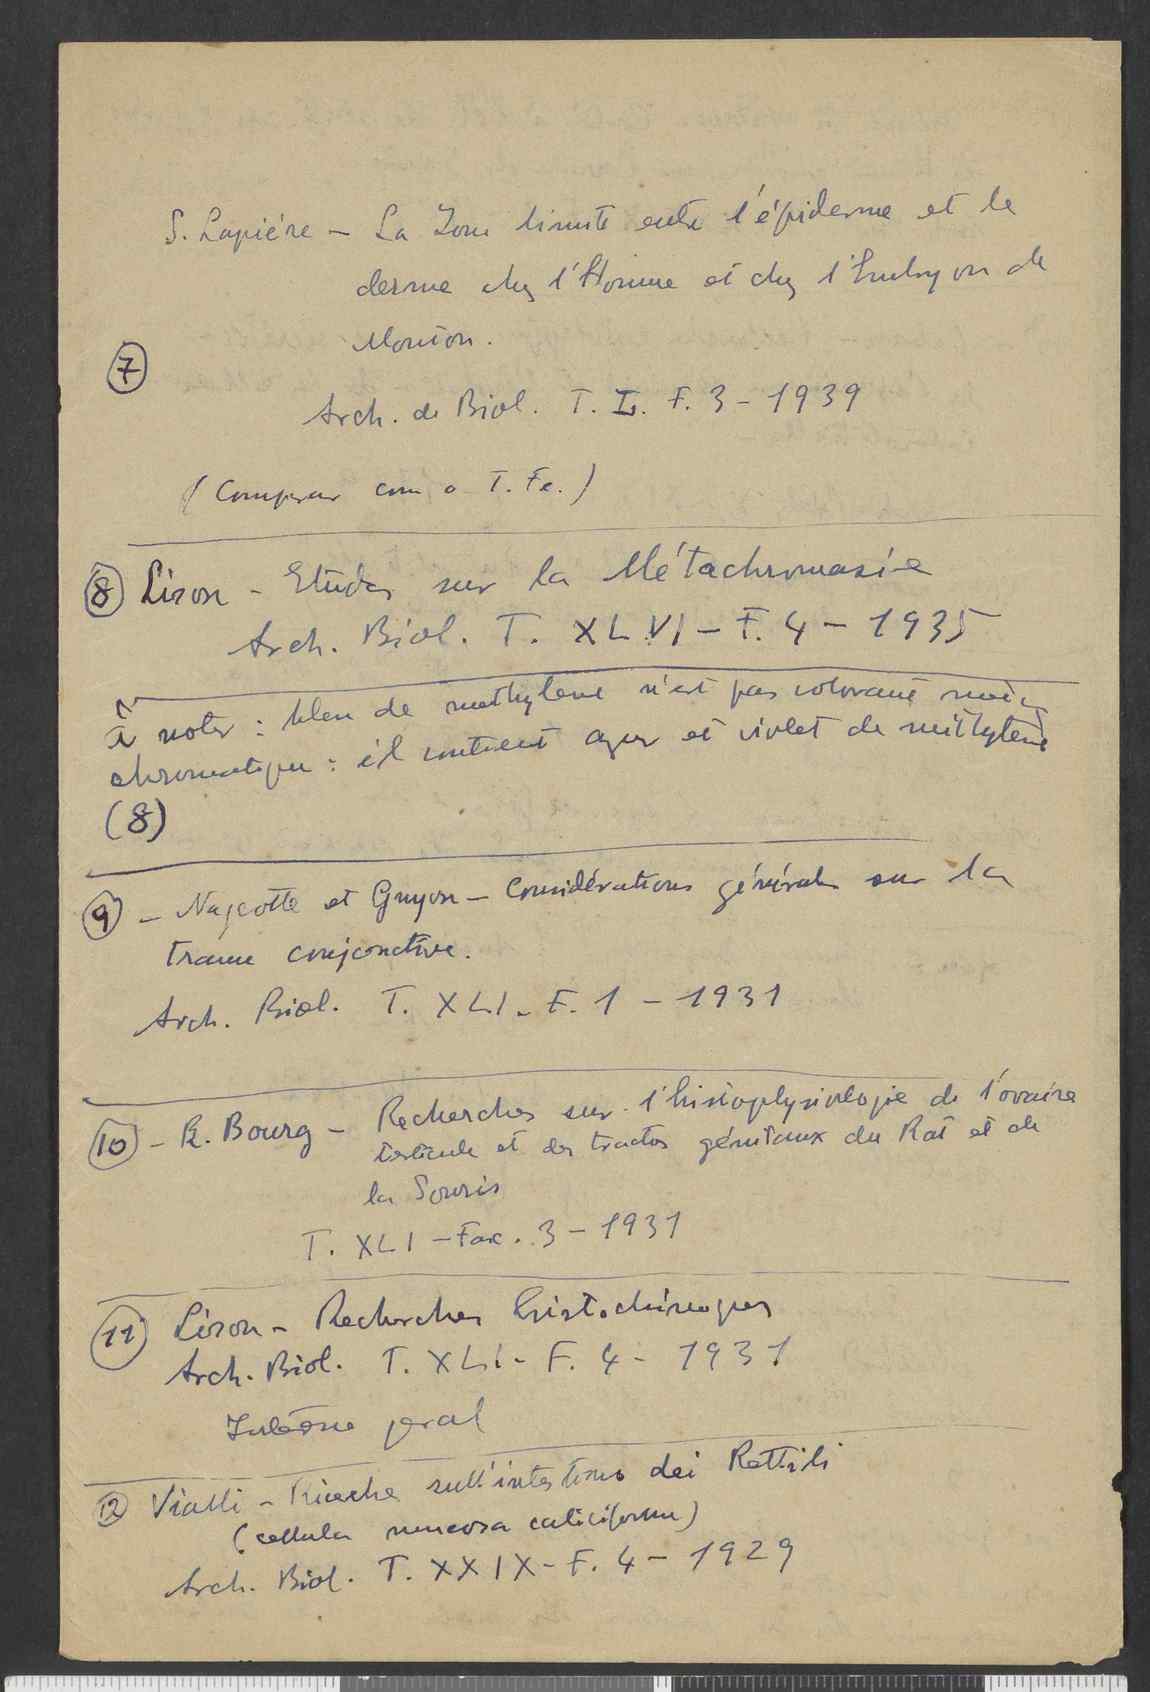 S. Lapière - La Zone limite entre l'épiderme et le
derme chez l'Homme et chez l'Embryon de
Mouton.
7
Arch. de Biol. T. L. F. 3 - 1939
(Comparar com o T. Fe.)
8 Lison - Etudes sur la Métachromasie
Arch. Biol. T. XLVI - F. 4 - 1935
À noter : bleu de methylene n'est pas colorant
chromatique : il contient azur et violet de methylene
(8)
9 - Nageotte et Guyon - Considérations générales sur la
trame conjonctive.
Arch. Biol. T. XLI - F. 1 - 1931
10 - R. Bourg - Recherches sur l'histophysiologie de l'ovaire
testicule et des tractus génitaux du Rat et de
la Souris
T. XLI - Fasc. 3 - 1931
11 Lison - Recherches histochimiques
Arch. Biol. T. XLI - F. 4 - 1931
geral
12 Vialli - Ricerche sull'intestino dei Rettili
(cellula mucosa caliciforme)
Arch. Biol. T. XXIX - F. 4 - 1929